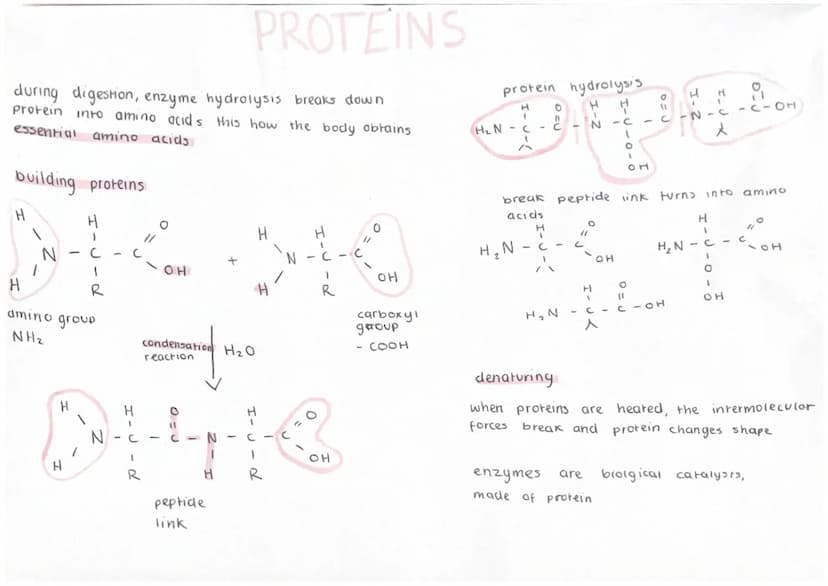 PROTEINS
during digestion, enzyme hydrolysis breaks down
protein into amino acids this how the body obtains
essential amino acids
building proteins
H H O
N - C - C
H R OH
+
H H O
N - C - C
H R OH
amino group
NH2
carboxyl
group
- COOH
condensation
reaction
H2O
H H O H O
N - C - C - N - C - C
H R H R OH
peptide
link
protein hydrolysis
H O H H O H H O
H2N - C - C - N - C - C - N - C - C - OH
O
OH
break peptide link turns into amino
acids
H O
H2N - C - C
OH
H O
H2N - C - C
OH
O
OH
H O
H2N - C - C - OH
denaturing
when proteins are heated, the intermolecular
forces break and protein changes shape
enzymes are biolgical catalysts,
made of protein